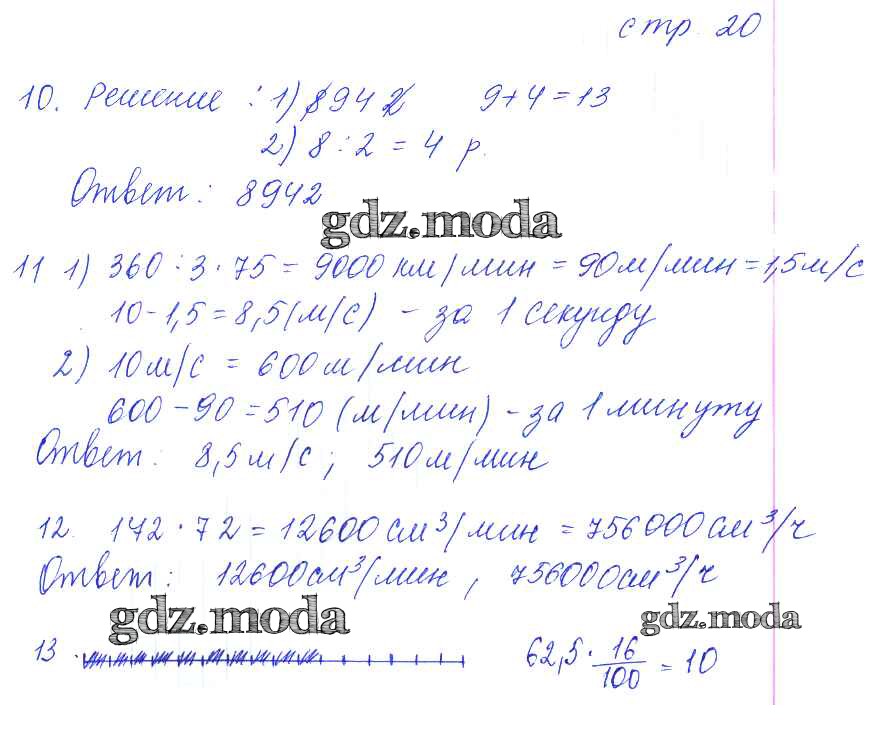 стр. 20
10. Решение : 1) 8942 9+4=13
2) 8 : 2 = 4 р.
Ответ : 8942
gdz.moda
11 1) 360 : 3 · 75 = 9000 км/мин = 90м/мин = 1,5м/с
10-1,5 = 8,5(м/с) - за 1 секунду
2) 10м/с = 600м/мин
600 - 90 = 510 (м/мин) - за 1 минуту
Ответ : 8,5м/с ; 510м/мин
12. 142 · 72 = 12600 см³/мин = 756000см³/ч
Ответ : 12600см³/мин , 756000см³/ч
gdz.moda
gdz.moda
13 . 62,5 · 16/100 = 10